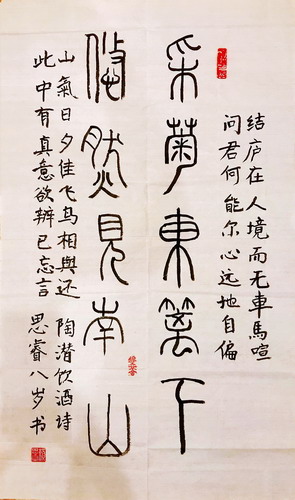 结庐在人境而无車馬喧
问君何能尔心远地自偏
采菊東篱下
悠然見南山
山氣日夕佳飞鸟相與还
此中有真意欲辨已忘言
陶潜饮酒诗
思睿八岁书